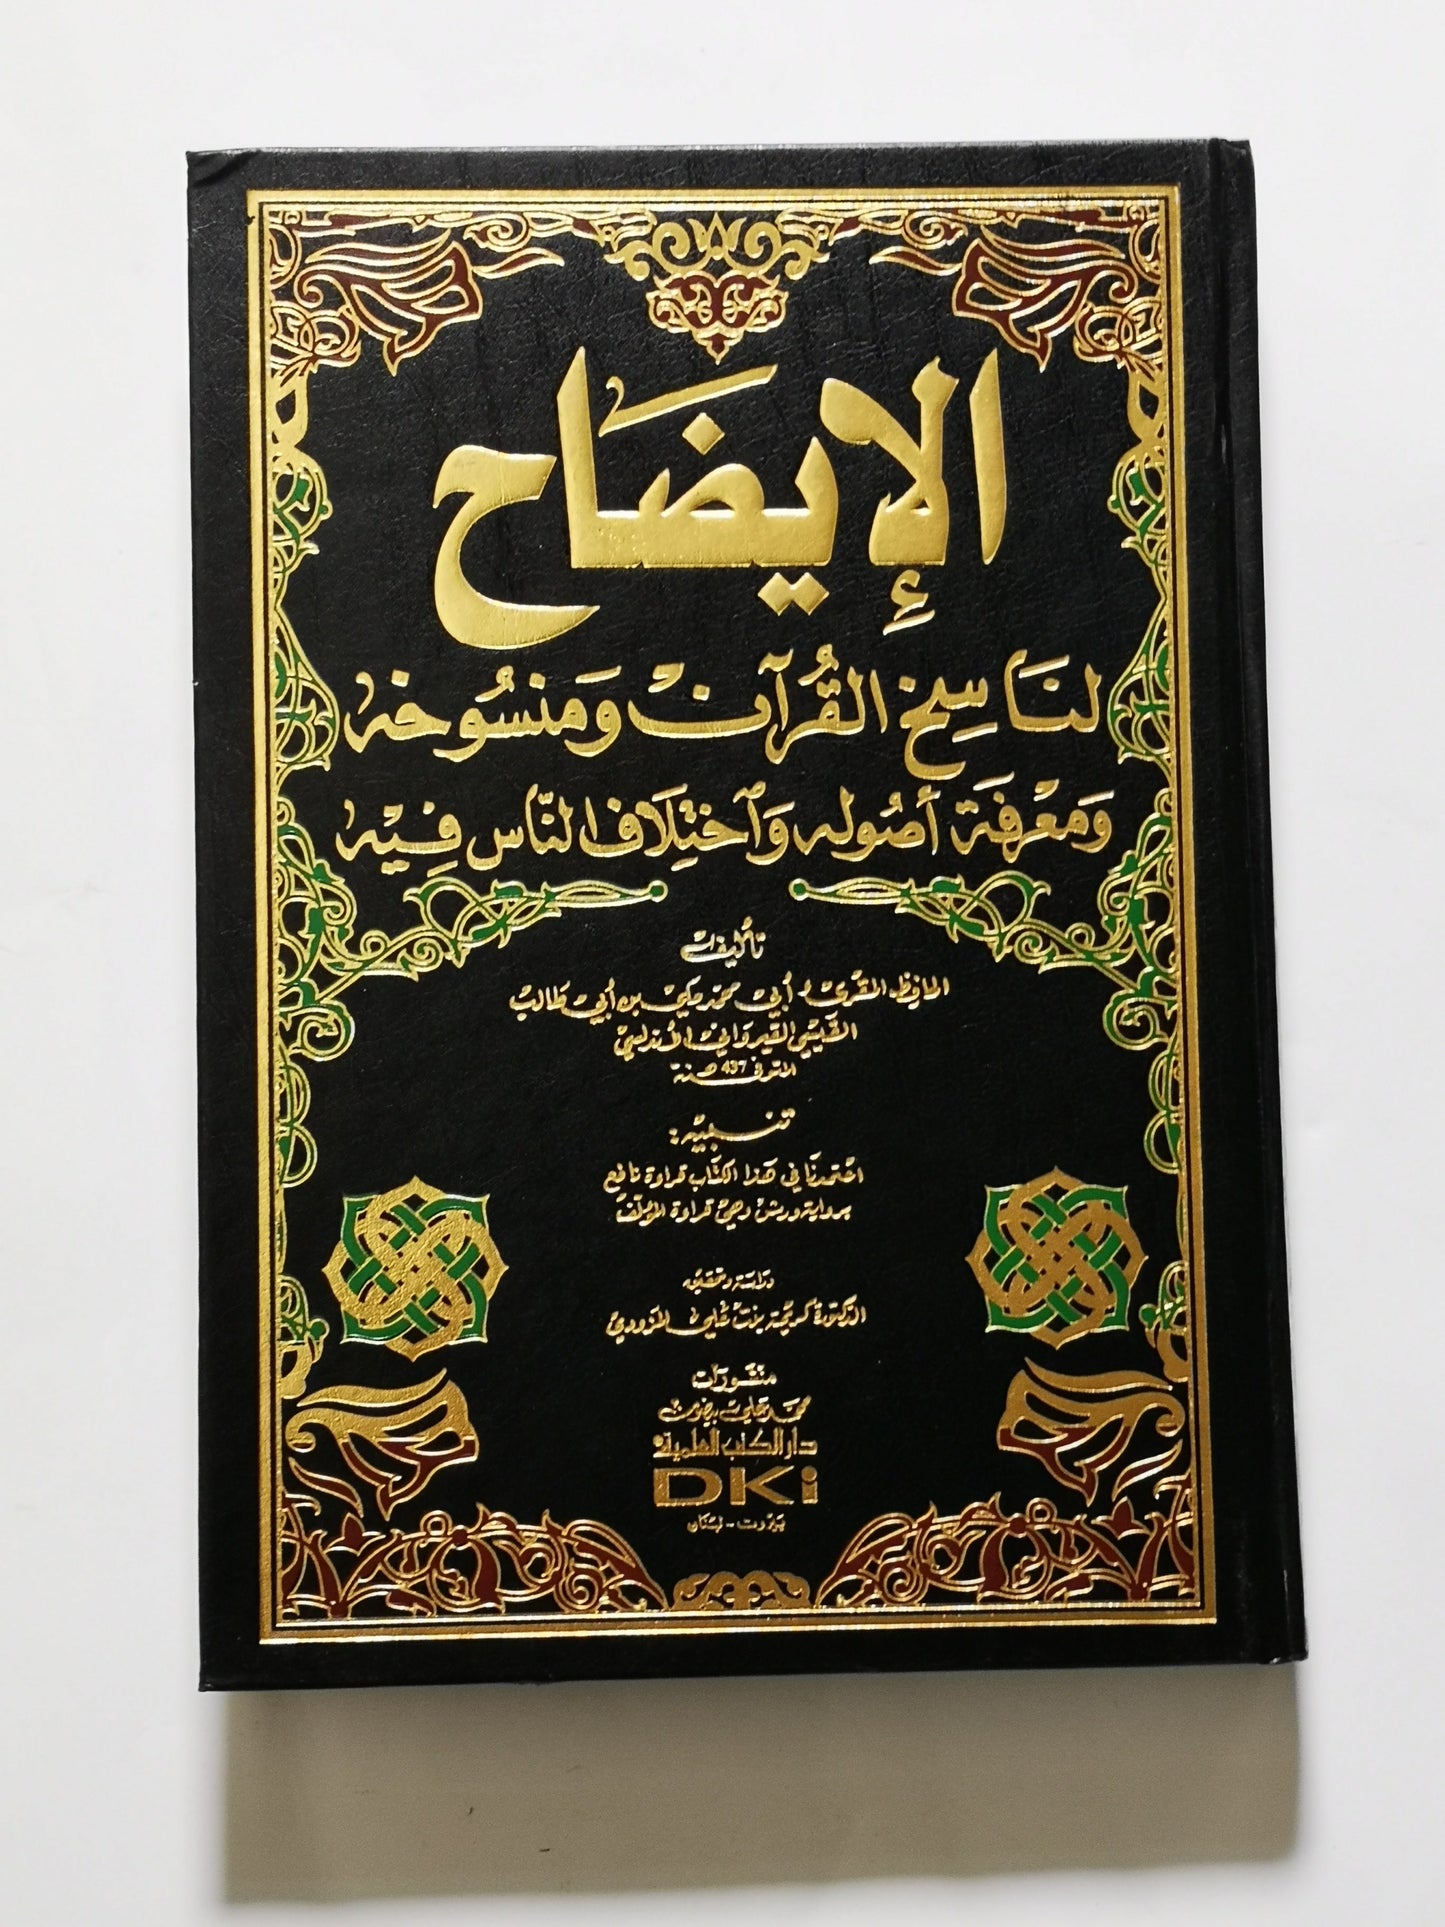 الإيضَاح
لنَاسِخ القُرآن وَمَنسُوخه
وَمَعْرفَة أصُوله وَٱختِلَاف النَّاس فِيْه
تأليف
الحافظ المقرئ أبي محمد مكي بن أبي طالب
القيسي القيرواني الأندلسي
المتوفى سنة 437 هـ
تنبيه:
اعتمدنا في هذا الكتاب قراءة نافع
برواية ورش وهي قراءة المؤلف
دراسة وتحقيق
الدكتورة كريمة بنت علي المزودي
منشورات
محمد علي بيضون
دار الكتب العلمية
DKi
بيروت - لبنان